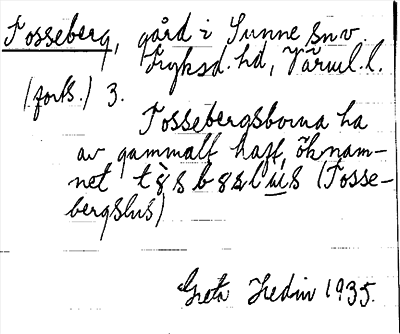 Fosseberg, gård i Sunne sn v.
Fryksd. hd, Värml. l.
(forts.) 3.
Fossebergsborna ha
av gammalt haft öknam-
net (Fosse-
bergslus)
Greta Hedin 1935.